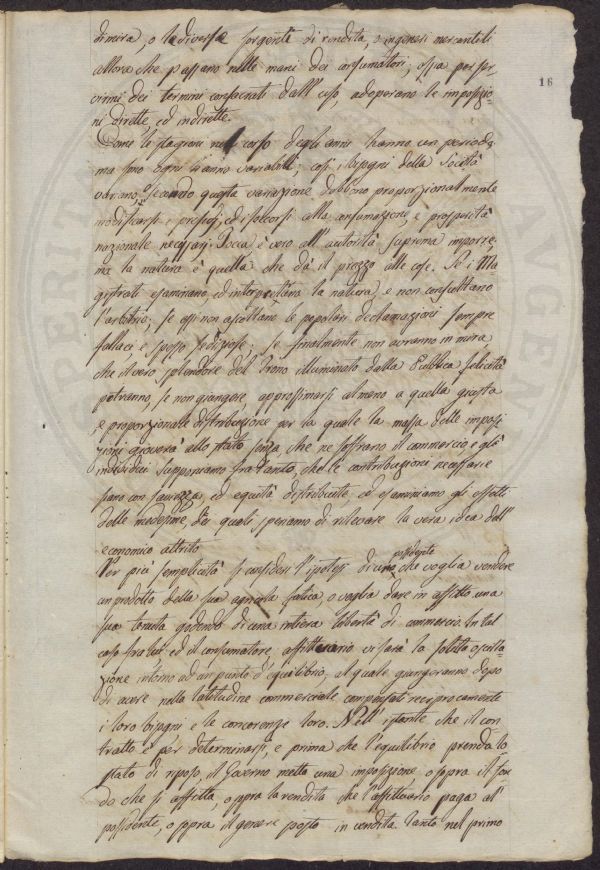 di mira, o le diverse sorgenti di rendita, o i generi mercantili
allora che passano nelle mani dei consumatori, ossia per ser-
16
virmi dei termini consacrati dall'uso, adoperano le imposizio-
ni dirette, ed indirette.
Come le stagioni nel corso degli anni hanno un periodo,
ma sono ogni anno variabili; così i bisogni della Società
variano. Secondo questa variazione debbono proporzionalmente
modificarsi i presi ed i soccorsi alla consumazione, e prosperità
nazionale necessari. Tocca è vero all'autorità suprema imporre,
ma la natura è quella che dà il prezzo alle cose. Se i Ma
gistrati esaminano ed interpretano la natura, e non consultano
l'arbitrio; se essi non ascoltano le popolari declamazioni sempre
fallaci e spesso sediziose; se finalmente non avranno in mira
che il vero splendore del Trono illuminato dalla Pubblica felicità
potranno, se non giungere, approssimarsi almeno a quella giusta
e proporzionale distribuzione per la quale la massa delle imposi
zioni gioverà allo stato senza che ne soffrano il commercio, e gli
individui. Supponiamo frattanto, che le contribuzioni necessarie
siano con saviezza, ed equità distribuite, ed esaminiamo gli effetti
delle medesime, dei quali speriamo di rilevare la vera idea dell'
economico attrito.
Per più semplicità si consideri l'ipotesi di uno possidente che voglia vendere
un prodotto della sua agricola fatica, o voglia dare in affitto una
sua tenuta godendo di una intiera libertà di commercio. In tal
caso fra lui ed il consumatore, affittuario vi sarà la solita oscilla
zione intorno ad un punto d'equilibrio, al quale giungeranno dopo
di avere nella latitudine commerciale compensati reciprocamente
i loro bisogni e le concorrenze loro. Nell'istante che il con
tratto è per determinarsi, e prima che l'equilibrio prenda lo
stato di riposo, il Governo metta una imposizione o sopra il fon
do che si affitta, o sopra la rendita che l'affittuario paga al
possidente, o sopra il genere posto in vendita. Tanto nel primo